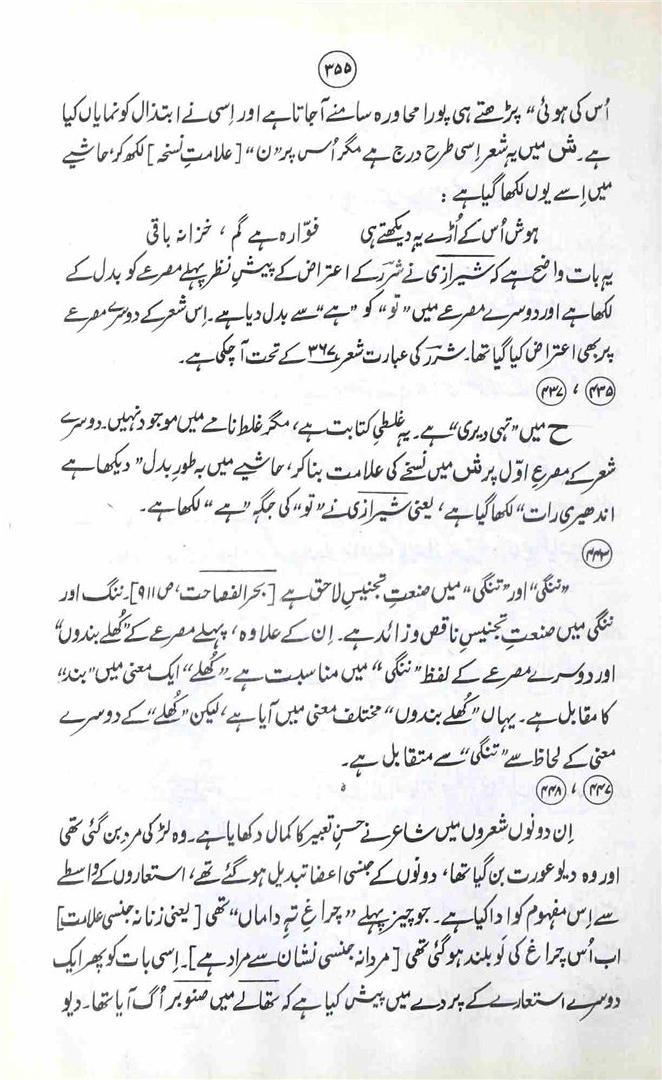 ۳۵۵
اُس کی ہوئی“ پڑھتے ہی پورا محاورہ سامنے آجاتا ہے اور اِسی نے ابتذال کو نمایاں کیا
ہے۔ ش میں یہ شعر اِسی طرح درج ہے مگر اُس پر ”ن“ [علامتِ نسخہ] لکھ کر، حاشیے
میں اِسے یوں لکھا گیا ہے :
ہوش اُس کے اُڑے یہ دیکھتے ہی فوّارہ ہے گم ، خزانہ باقی
یہ بات واضح ہے کہ شیرازی نے شررؔ کے اعتراض کے پیشِ نظر پہلے مصرعے کو بدل کے
لکھا ہے اور دوسرے مصرعے میں ”تو“ کو ”ہے“ سے بدل دیا ہے۔ اِس شعر کے دوسرے مصرعے
پر بھی اعتراض کیا گیا تھا۔ شررؔ کی عبارت شعر ۳۶۷ کے تحت آچکی ہے۔
۴۳۵ ، ۴۳۷
ح میں ”تہی دیری“ ہے۔ یہ غلطیِ کتابت ہے، مگر غلط نامے میں موجود نہیں۔ دوسرے
شعر کے مصرعِ اوّل پر ش میں نسخے کی علامت بنا کر، حاشیے میں بہ طورِ بدل ”دیکھا ہے
اندھیری رات“ لکھا گیا ہے، یعنی شیرازی نے ”تو“ کی جگہ ”ہے“ لکھا ہے۔
۴۴۳
”ننگی“ اور ”تنگی“ میں صنعتِ تجنیس لاحق ہے [بحر الفصاحت، ص ۹۱۱]۔ ننگ اور
ننگی میں صنعتِ تجنیسِ ناقص و زائد ہے۔ اِن کے علاوہ، پہلے مصرعے کے ”کُھلے بندوں“
اور دوسرے مصرعے کے لفظ ”ننگی“ میں مناسبت ہے۔ ”کُھلے“ ایک معنی میں ”بند“
کا مقابل ہے۔ یہاں ”کُھلے بندوں“ مختلف معنی میں آیا ہے، لیکن ”کُھلے“ کے دوسرے
معنی کے لحاظ سے ”تنگی“ سے متقابل ہے۔
۴۴۷ ، ۴۴۸
اِن دونوں شعروں میں شاعر نے حسنِ تعبیر کا کمال دکھایا ہے۔ وہ لڑکی مرد بن گئی تھی
اور وہ دیو عورت بن گیا تھا، دونوں کے جنسی اعضا تبدیل ہو گئے تھے، استعاروں کے واسطے
سے اِس مفہوم کو ادا کیا ہے۔ جو چیز پہلے ”چراغِ تہِ داماں“ تھی [یعنی زنانہ جنسی علامت]
اب اُس چراغ کی لَو بلند ہو گئی تھی [مردانہ جنسی نشان سے مراد ہے]۔ اِسی بات کو پھر ایک
دوسرے استعارے کے پردے میں پیش کیا ہے کہ تھالے میں صنوبر اُگ آیا تھا۔ دیو